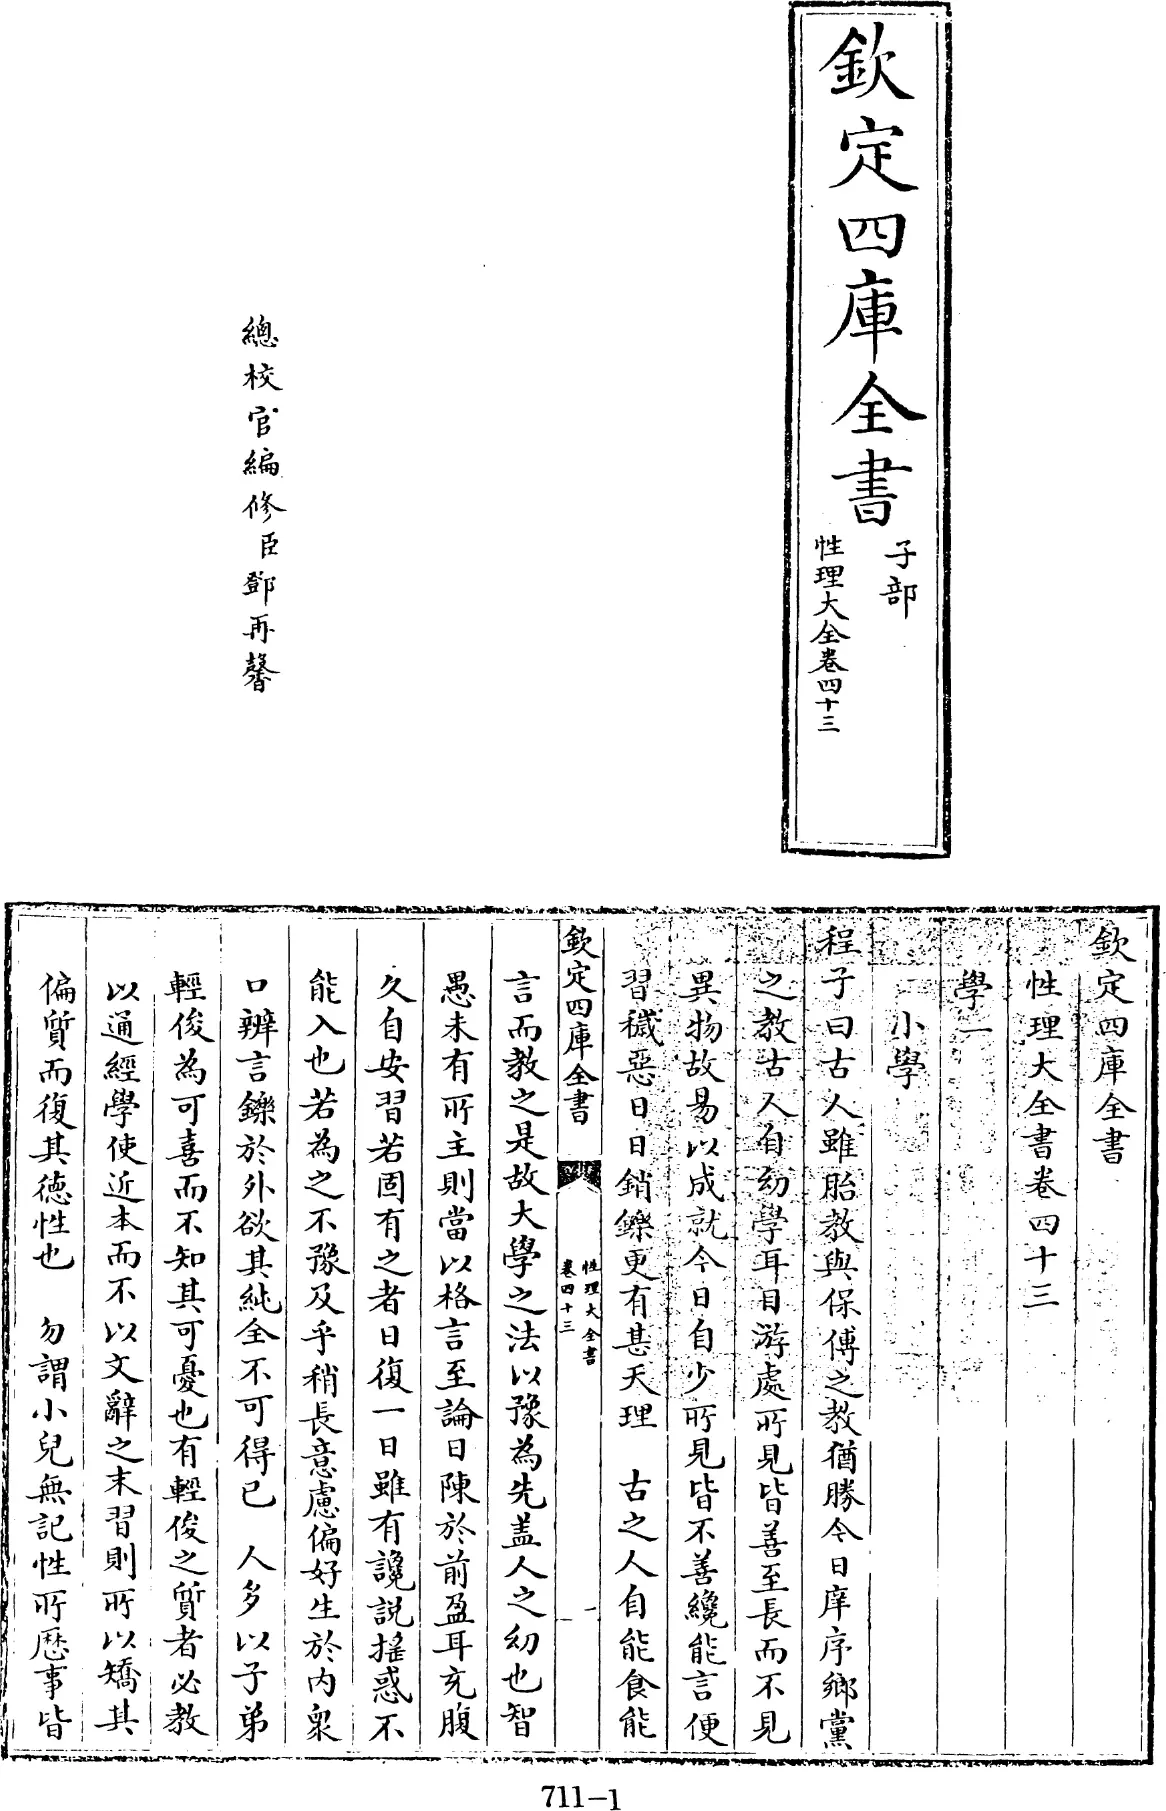 欽定四庫全書
子部
性理大全卷四十三
總校官編修臣鄧再馨
欽定四庫全書
性理大全書卷四十三
學一
小學
程子曰古人雖胎教與保傅之教猶勝今日庠序鄉黨
之教古人自幼學耳目游處所見皆善至長而不見
異物故易以成就今日自少所見皆不善纔能言便
習穢惡日日銷鑠更有甚天理　古之人自能食能
欽定四庫全書
性理大全書
卷四十三
一
言而教之是故大學之法以豫為先盖人之幼也智
愚未有所主則當以格言至論日陳於前盈耳充腹
久自安習若固有之者日復一日雖有讒説搖惑不
能入也若為之不豫及乎稍長意慮偏好生於内衆
口辨言鑠於外欲其純全不可得已　人多以子弟
輕俊為可喜而不知其可憂也有輕俊之質者必教
以通經學使近本而不以文辭之末習則所以矯其
偏質而復其德性也　勿謂小兒無記性所歷事皆
711-1